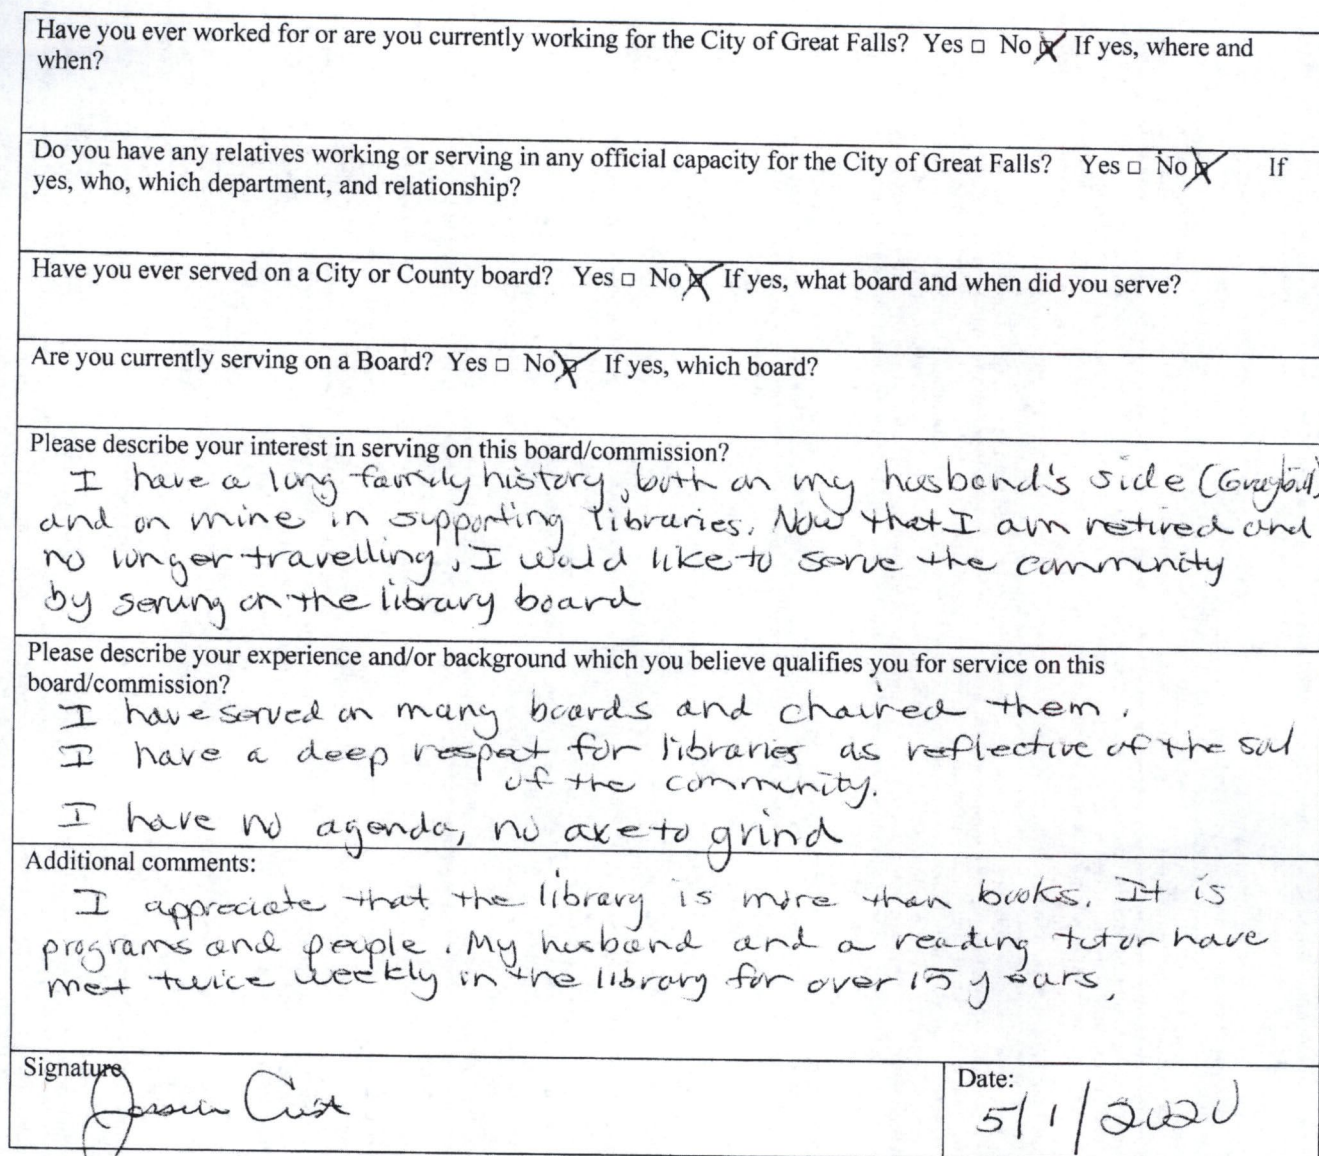 Have you ever worked for or are you currently working for the City of Great Falls? Yes □ No ☒ If yes, where and
when?
Do you have any relatives working or serving in any official capacity for the City of Great Falls? Yes □ No ☒ If
yes, who, which department, and relationship?
Have you ever served on a City or County board? Yes □ No ☒ If yes, what board and when did you serve?
Are you currently serving on a Board? Yes □ No ☒ If yes, which board?
Please describe your interest in serving on this board/commission?
I have a long family history, both on my husband's side (Graybill)
and on mine in supporting libraries. Now that I am retired and
no longer travelling, I would like to serve the community
by serving on the library board
Please describe your experience and/or background which you believe qualifies you for service on this
board/commission?
I have served on many boards and chaired them.
I have a deep respect for libraries as reflective of the soul
of the community.
I have no agenda, no axe to grind
Additional comments:
I appreciate that the library is more than books. It is
programs and people. My husband and a reading tutor have
met twice weekly in the library for over 15 years.
Signature
Date:
5/1/2020